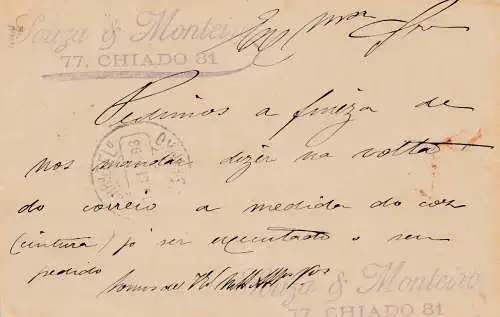 Souza & Monteiro
77, CHIADO 81
Exmo Snr
Pedimos a fineza de
nos mandar dizer na volta
do correio a medida do coz
(cintura) pa ser executado o seu
pedido
Somos de V.
Souza & Monteiro
77, CHIADO 81